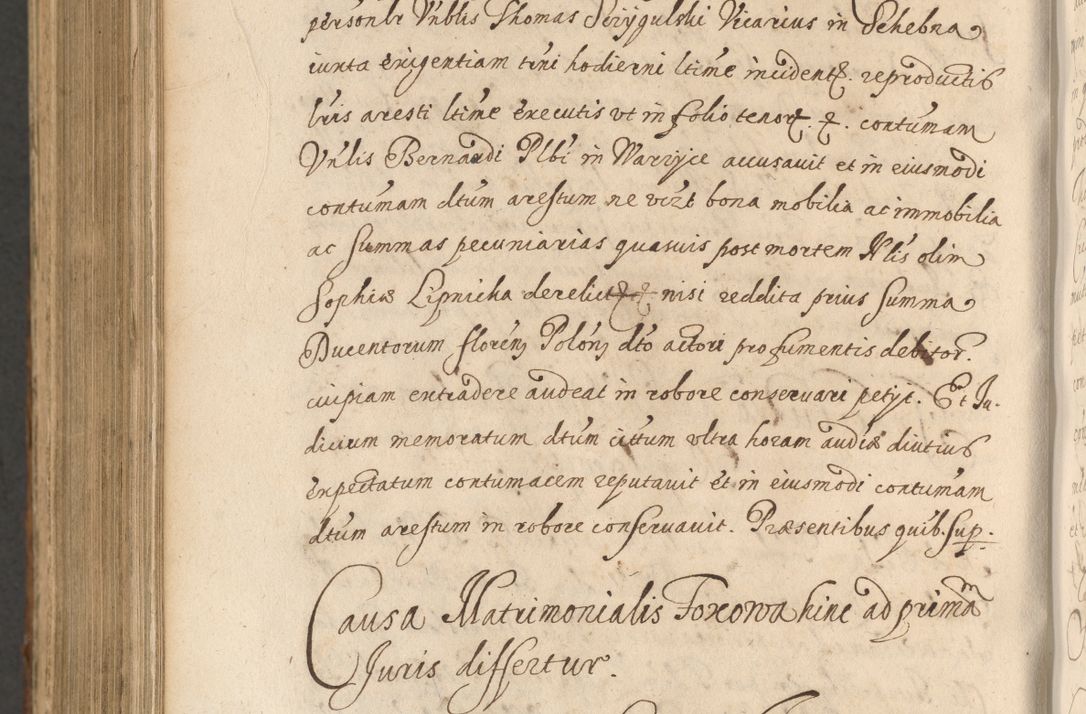 personlr Vnblis Thomas Przygulski Vicarius in Schebna
iuxta exigentiam tñi hodierni ltime incident. reproductis
lris aresti ltime executis vt in folio tenor. contumam
Vnlis Bernardi Plbi in Warzyce accusauit et in eiusmodi
contumam dtum arestum ne vizt bona mobilia ac immobilia
ac summas pecuniarias quasuis post mortem Nlis olim
Sophiæ Lipnicka derelict nisi reddita prius summa
Ducentorum floren Polon dto actori pro fumentis debitor.
cuipiam extradere audeat in robore conseruari petyt. Et Iu-
dicium memoratum dtum cittum vltra horam audiæ diutius
expectatum contumacem reputauit et in eiusmodi contumam
dtum arestum in robore conseruauit. Præsentibus quib. sup.
Causa Matrimonialis Foxowa hinc ad primam
Iuris differtur.